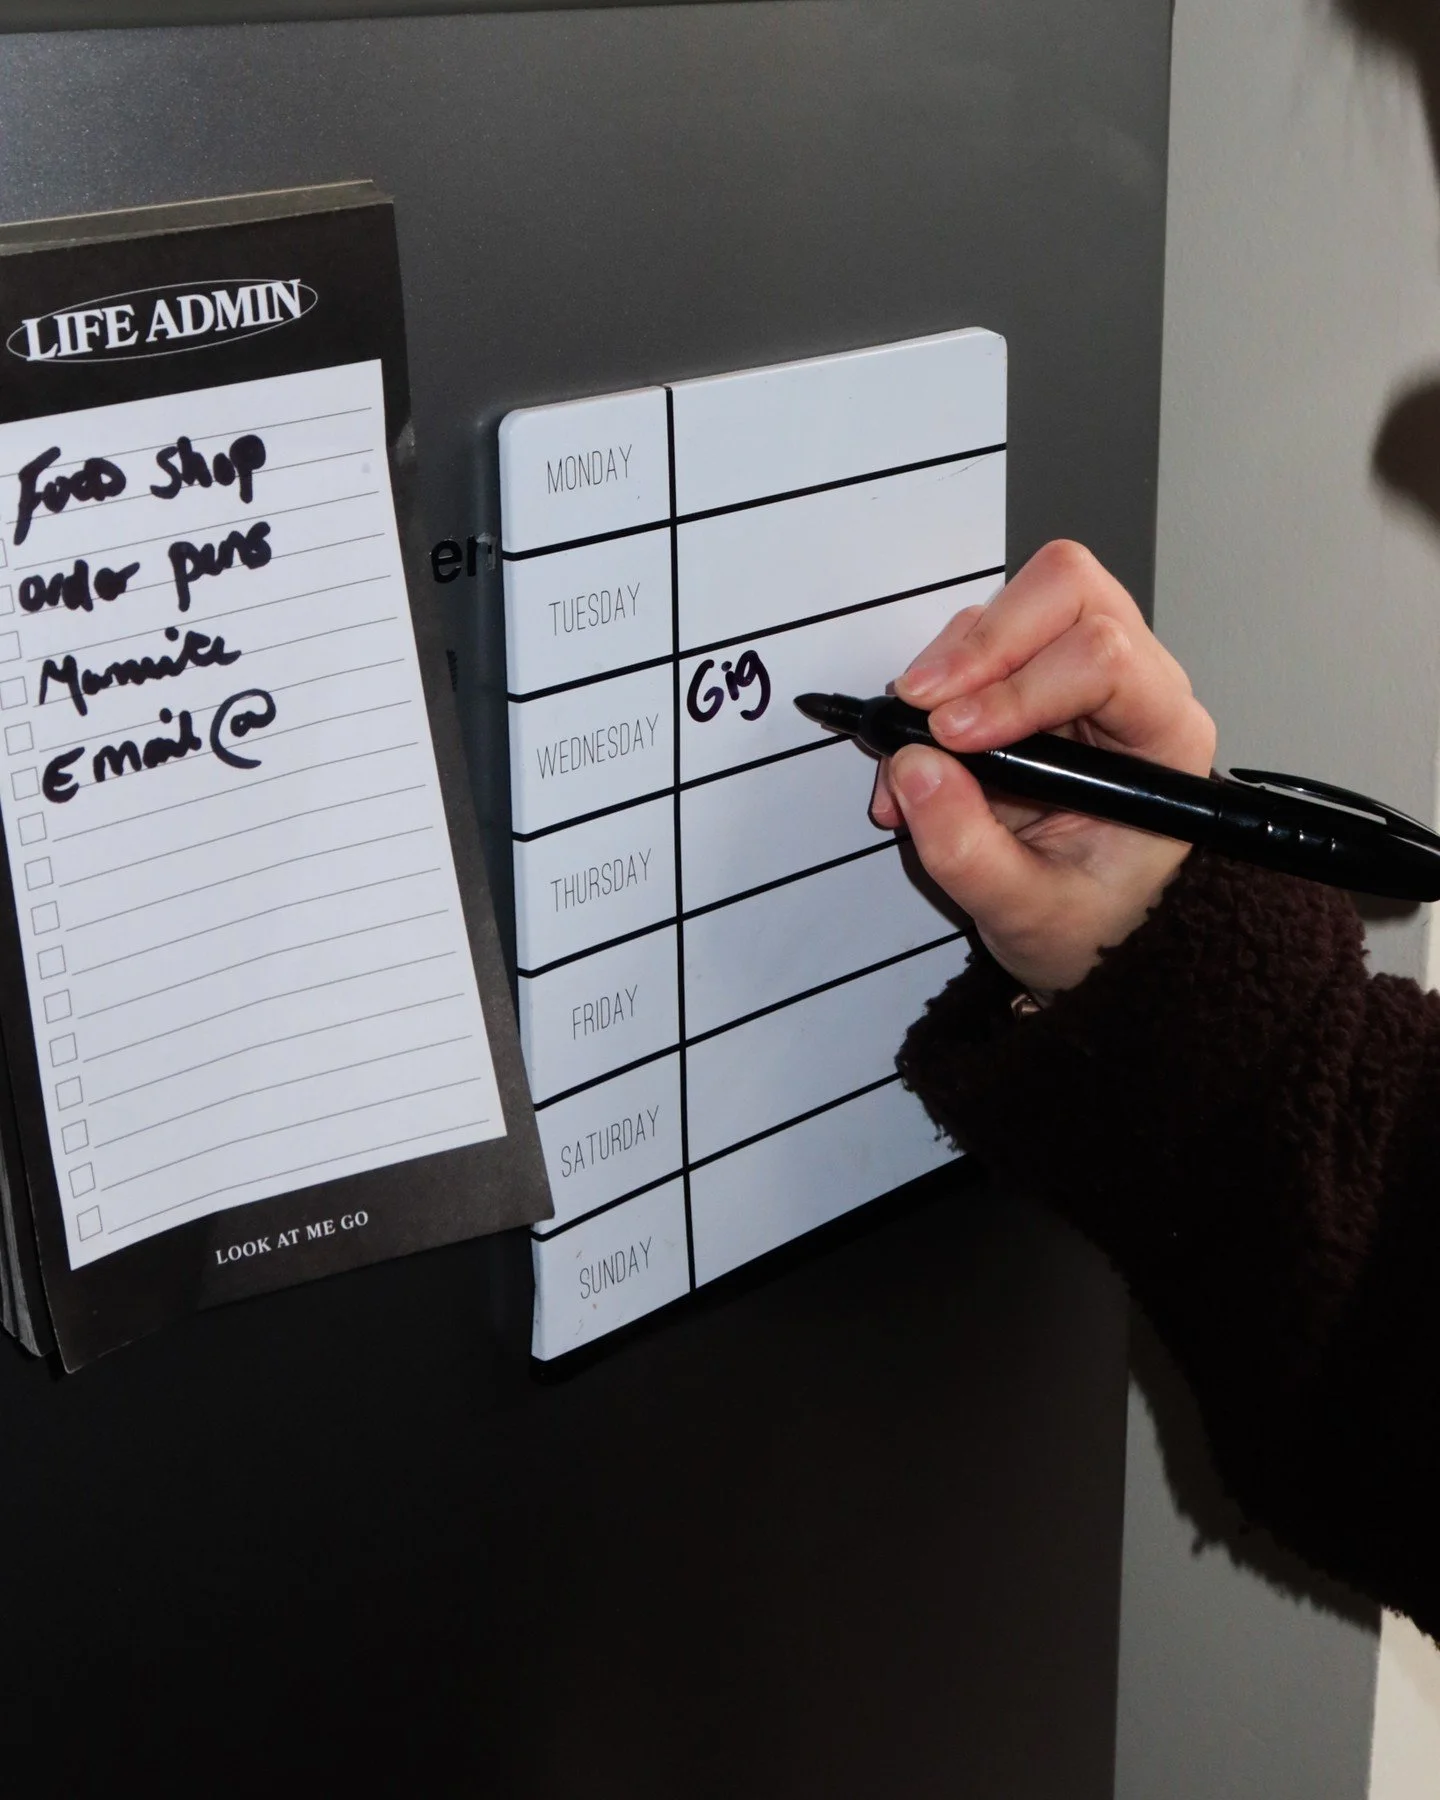 LIFE ADMIN
Food Shop
order pens
Marmite
Email @
LOOK AT ME GO
en
MONDAY
TUESDAY
WEDNESDAY Gig
THURSDAY
FRIDAY
SATURDAY
SUNDAY